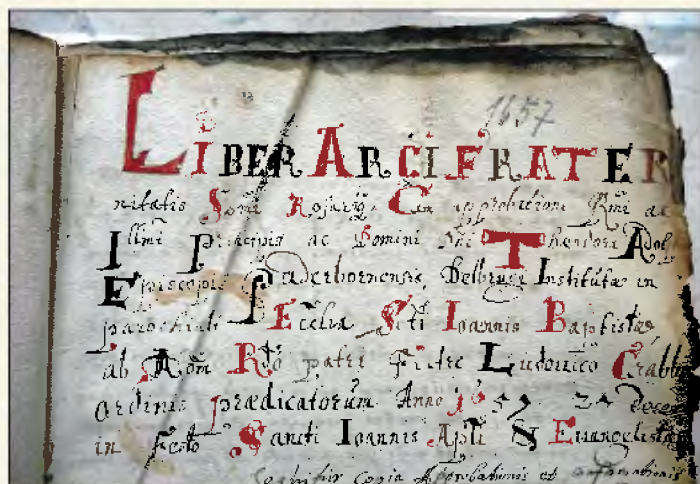 1657
LIBER ARCIFRATER
nitatis Sctmi Rosarij, Cum approbatione Rmi ac
Illmi Principis ac Domini Dni Theodori Adol
Episcopi Paderbornensis, Delbrugae Institutae in
parochiali Ecclia Scti Ioannis Baptistae,
ab Adm Rdo patre Fratre Ludovico Crabb
ordinis praedicatorum Anno 1657 27 Decem
in festo Sancti Ioannis Apli & Euangelistae
Sequitur Copia Approbationis et